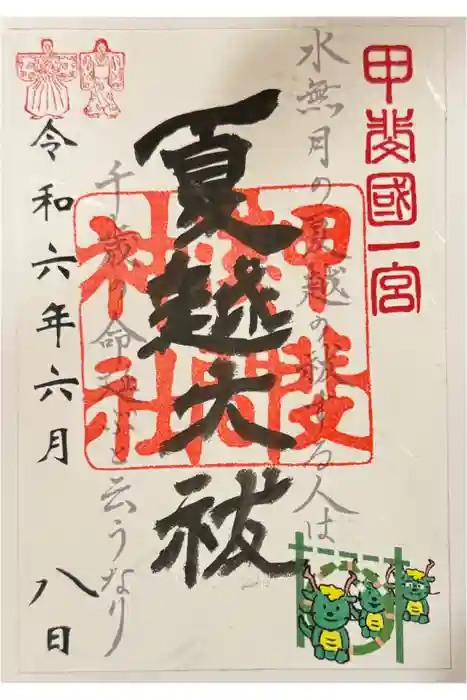 甲斐國一宮
水無月の夏越の祓する人は
夏越大祓
甲斐
浅間
神社
千歳の命延ぶと云うなり
令和六年六月八日